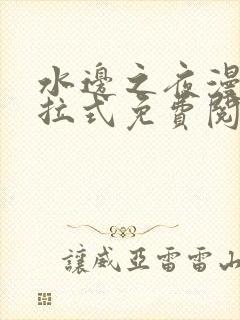 水邊之夜漫
拉式免費閱
讓威亞雷雷山